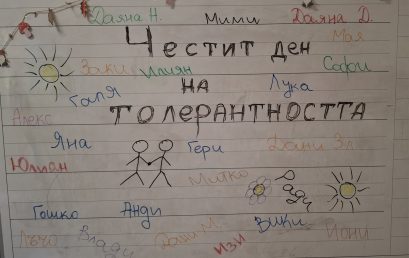 Даяна Н. Мими Даяна Д.
Честит ден Мая
Заки Илиян Софи
Галя на Лука
Алекс толерантността
Яна Гери Дани Зл.
Юлиан
Митко Ради
Гошко Анди Вики Йони
Лъчо Влади Дани М. Изи